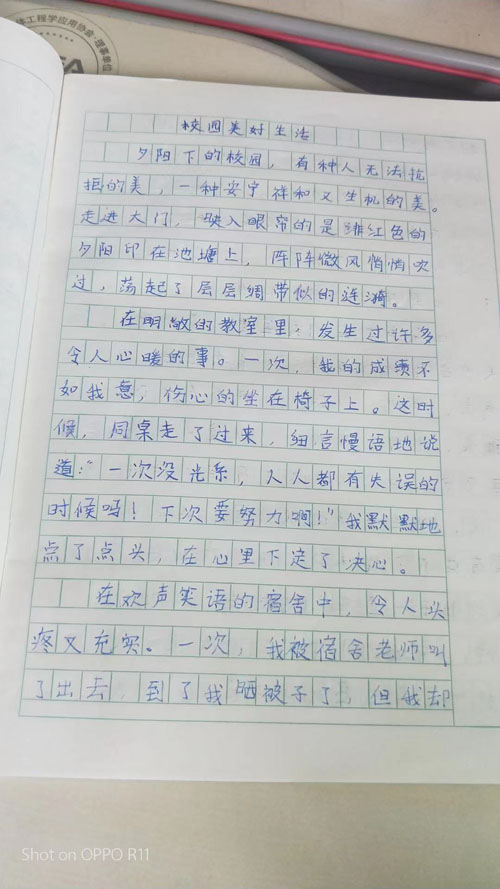 体工程学应用协会·理事单位
校园美好生活
夕阳下的校园，有种人无法抗
拒的美，一种安宁祥和又生机的美。
走进大门，映入眼帘的是绯红色的
夕阳印在池塘上，阵阵微风悄悄吹
过，荡起了层层绸带似的涟漪。
在明敞的教室里，发生过许多
令人心暖的事。一次，我的成绩不
如我意，伤心的坐在椅子上。这时
候，同桌走了过来，细言慢语地说
道：“一次没光系，人人都有失误的
时候吗！下次要努力啊！”我默默地
点了点头，在心里下定了决心。
在欢声笑语的宿舍中，令人头
疼又充实。一次，我被宿舍老师叫
了出去，到了我晒被子了，但我却
Shot on OPPO R11